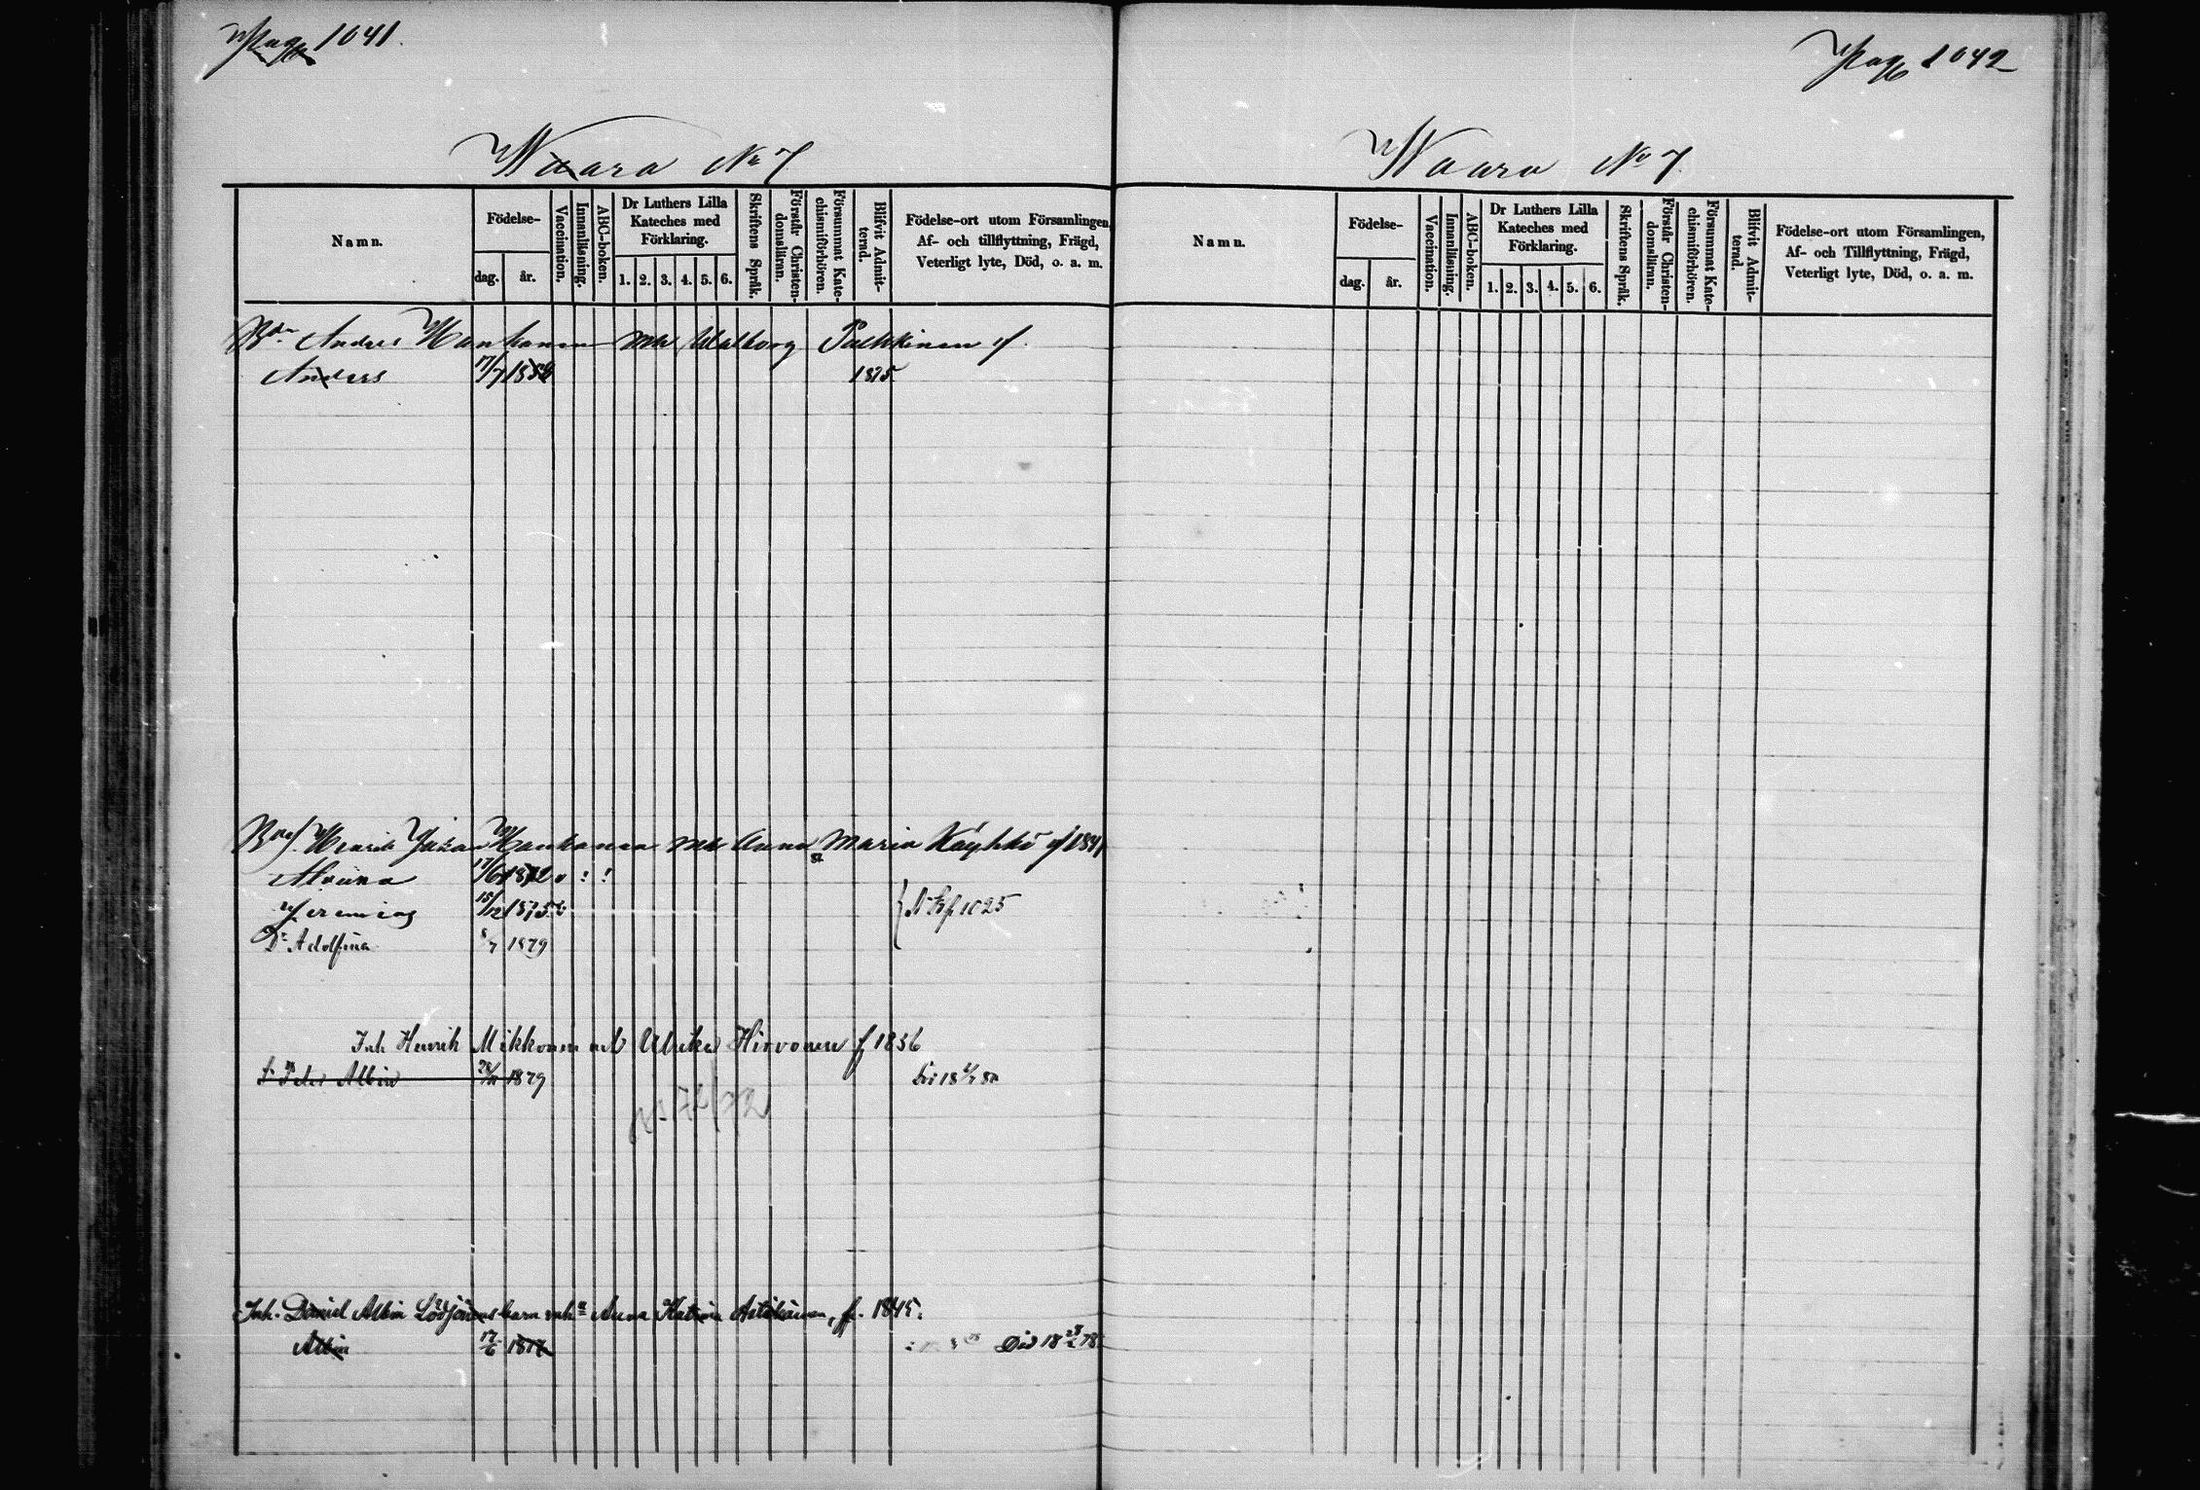 Pag 1041.
Waara No 7
Namn.
Födelse-
dag.
år.
Vaccination.
Innanläsning.
ABC-boken.
Dr Luthers Lilla
Kateches med
Förklaring.
1. 2. 3. 4. 5. 6.
Skriftens Språk.
Förstår Christen-
domsläran.
Försummat Kate-
chismiförhören.
Blifvit Admit-
terad.
Födelse-ort utom Församlingen,
Af- och tillflyttning, Frägd,
Veterligt lyte, Död, o. a. m.
Anders Mh Walborg
Anders 17/7 1875
Henrik Johan Mh Anna Maria Käyhkö f 1841
Alvina 17/6 1872
Jeremias 15/12 1875
Dr Adolfina 8/7 1879
1025
Inh Henrik Mikkonen mh Ulrika Hirvonen f 1856
Sr Peter Albin 1879
72/72
Inh. Daniel Albin barn mh Anna Katrina f. 1845.
Albin 17/6 Död 18 78
Pag 1042
Waara No 7
Namn.
Födelse-
dag.
år.
Vaccination.
Innanläsning.
ABC-boken.
Dr Luthers Lilla
Kateches med
Förklaring.
1. 2. 3. 4. 5. 6.
Skriftens Språk.
Förstår Christen-
domsläran.
Försummat Kate-
chismiförhören.
Blifvit Admit-
terad.
Födelse-ort utom Församlingen,
Af- och Tillflyttning, Frägd,
Veterligt lyte, Död, o. a. m.